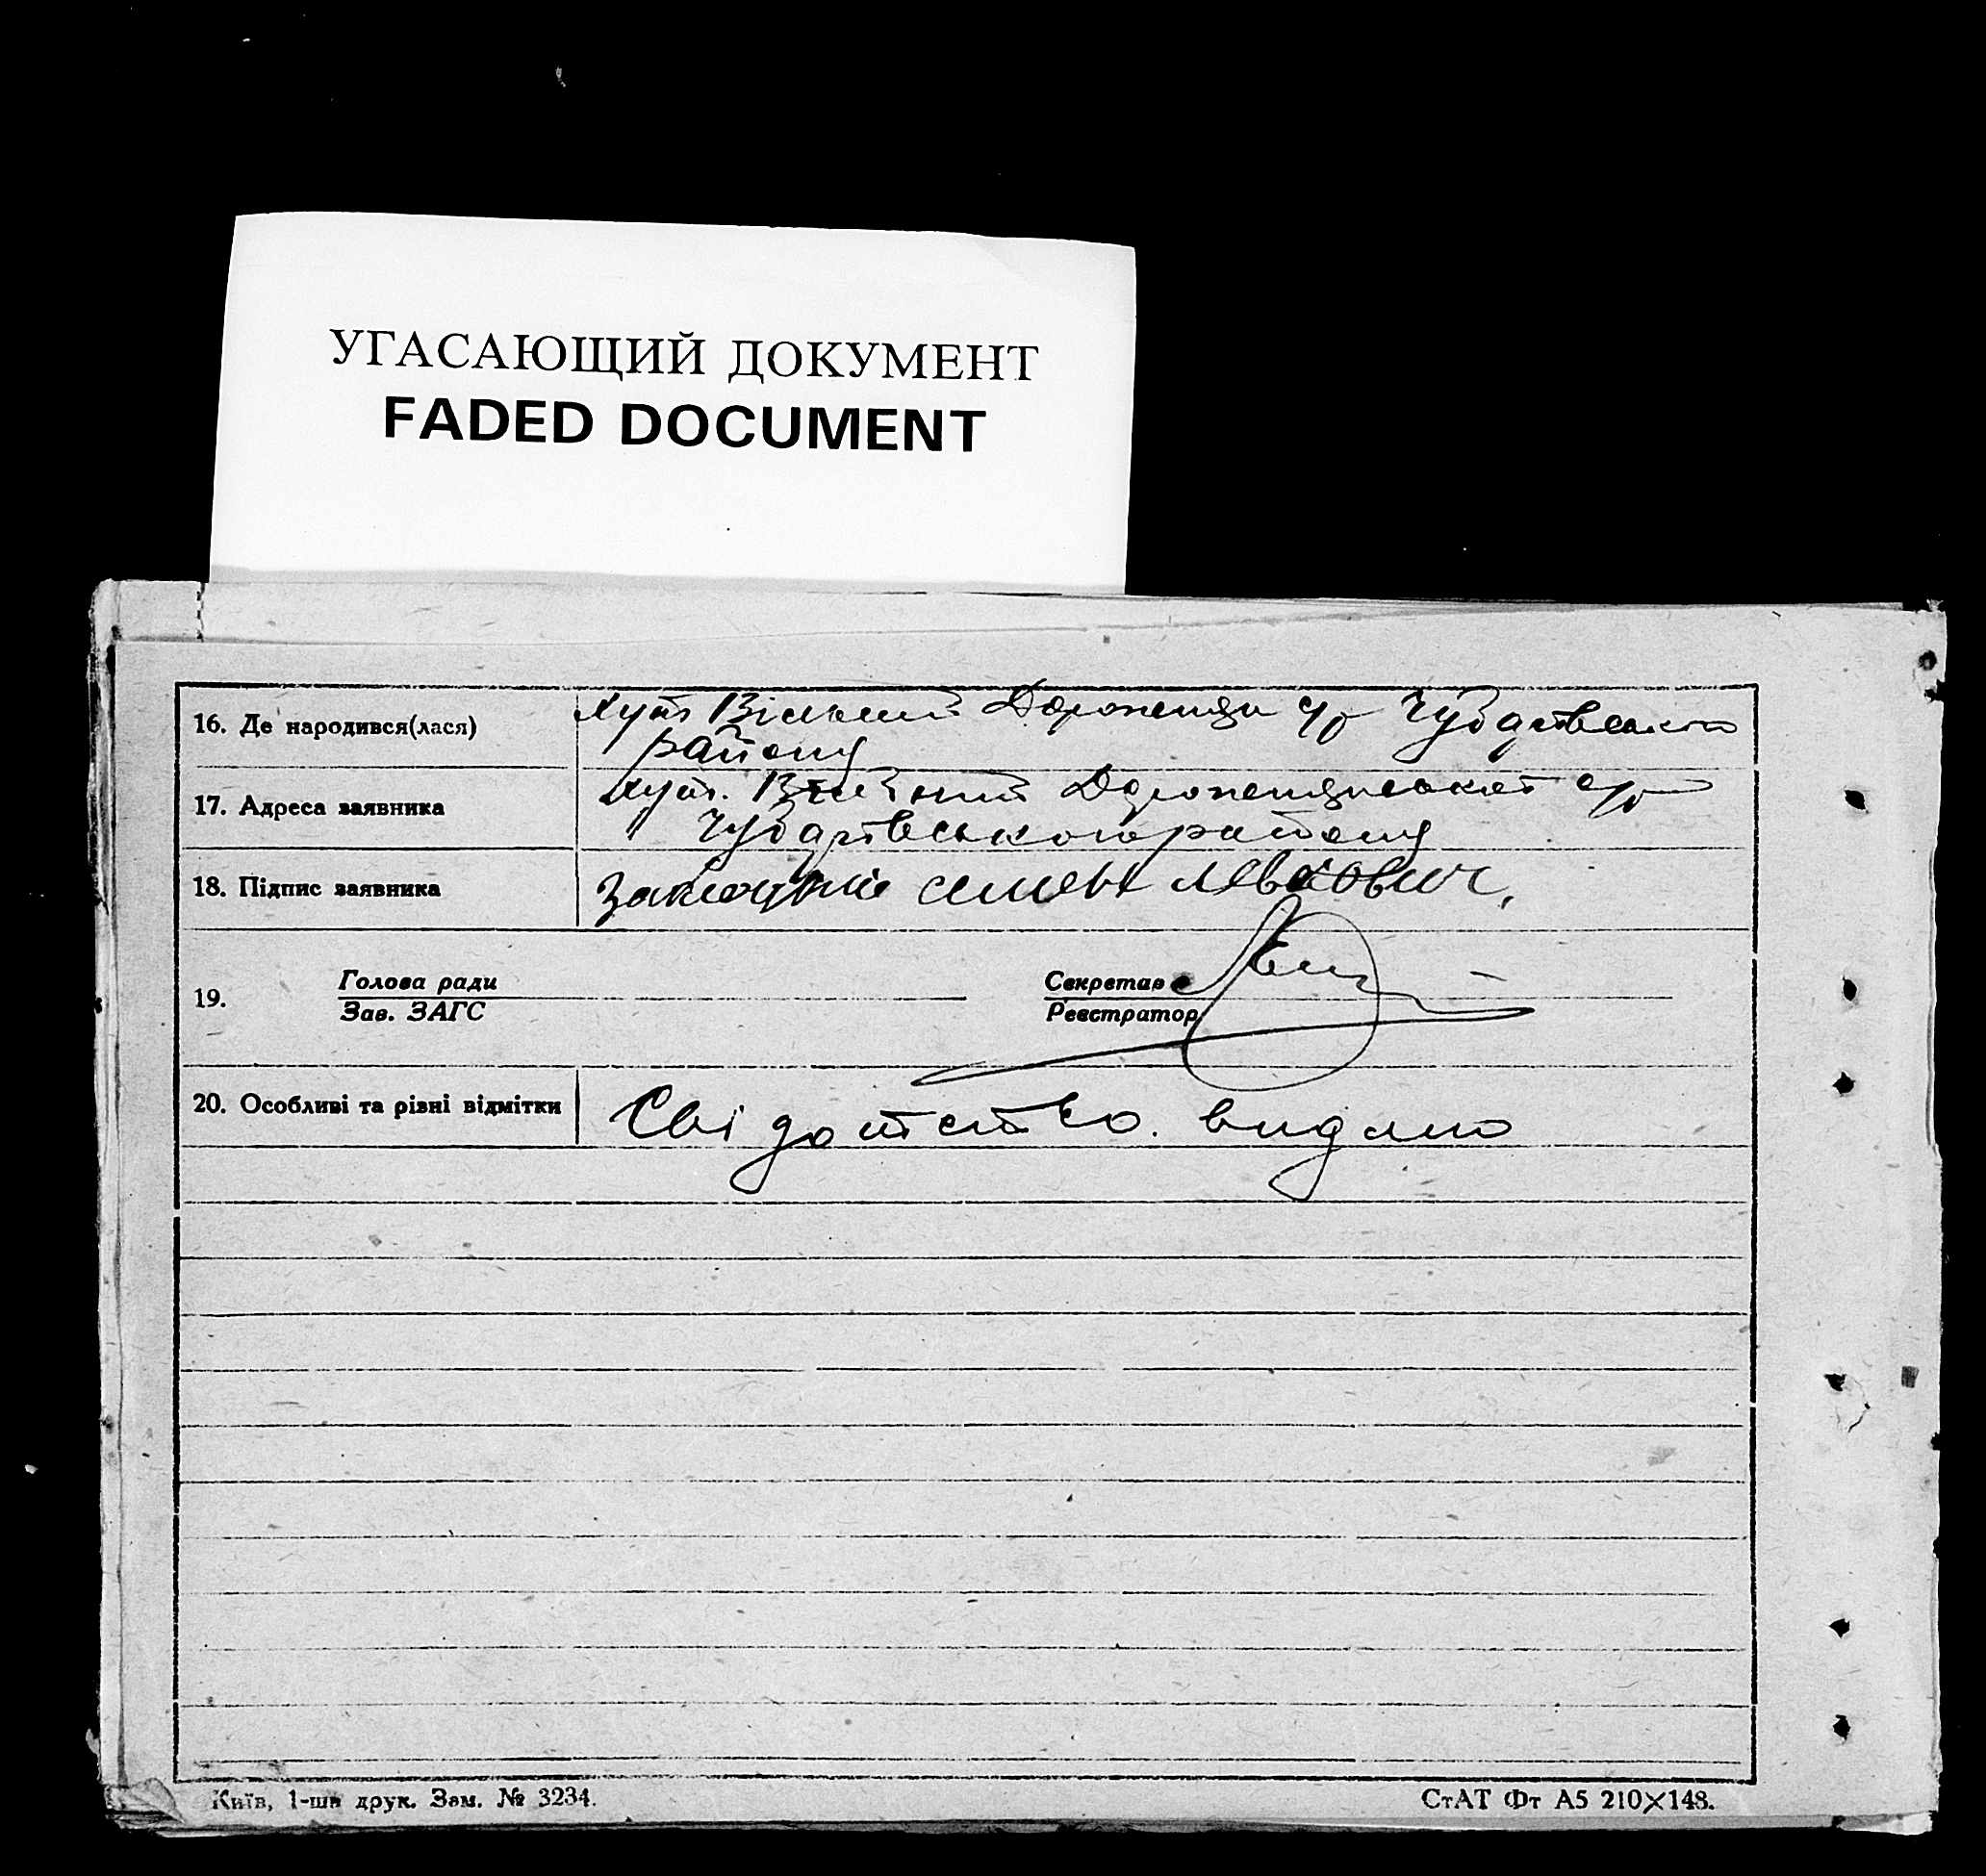 УГАСАЮЩИЙ ДОКУМЕНТ
FADED DOCUMENT
16. Де народився(лася)
хут Вільний с/р Чубарівського
району
17. Адреса заявника
хут. с/р
Чубарівського району
18. Підпис заявника
Семен Левкович,
19.
Голова ради
Зав. ЗАГС
Секретар
Реєстратор
20. Особливі та різні відмітки
Свідотство. видано
Київ, 1-ша друк. Зам. № 3234.
СтАТ Фт А5 210×148.